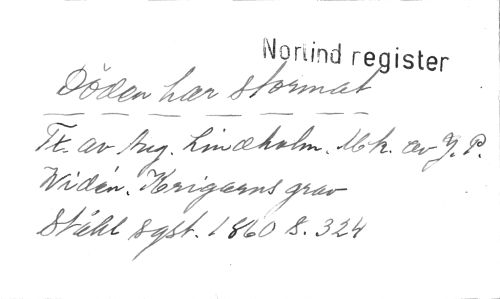 Norlind register
Döden har stormat
Tx. av Aug. Lindholm. Mk. av J. P.
Widén. Krigarns grav
Ståhl sgst. 1860 s. 324